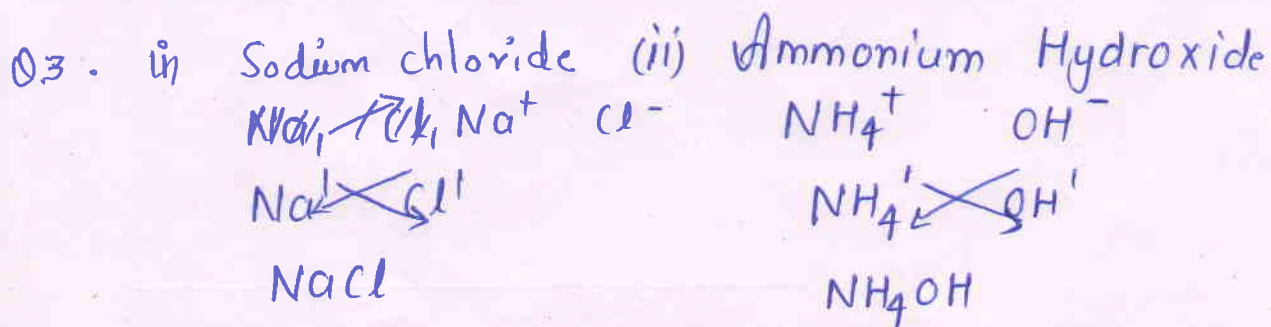 Q3. (i) Sodium chloride (ii) Ammonium Hydroxide
Na⁺ Cl⁻ NH₄⁺ OH⁻
Na¹ Cl¹ NH₄¹ OH¹
NaCl NH₄OH